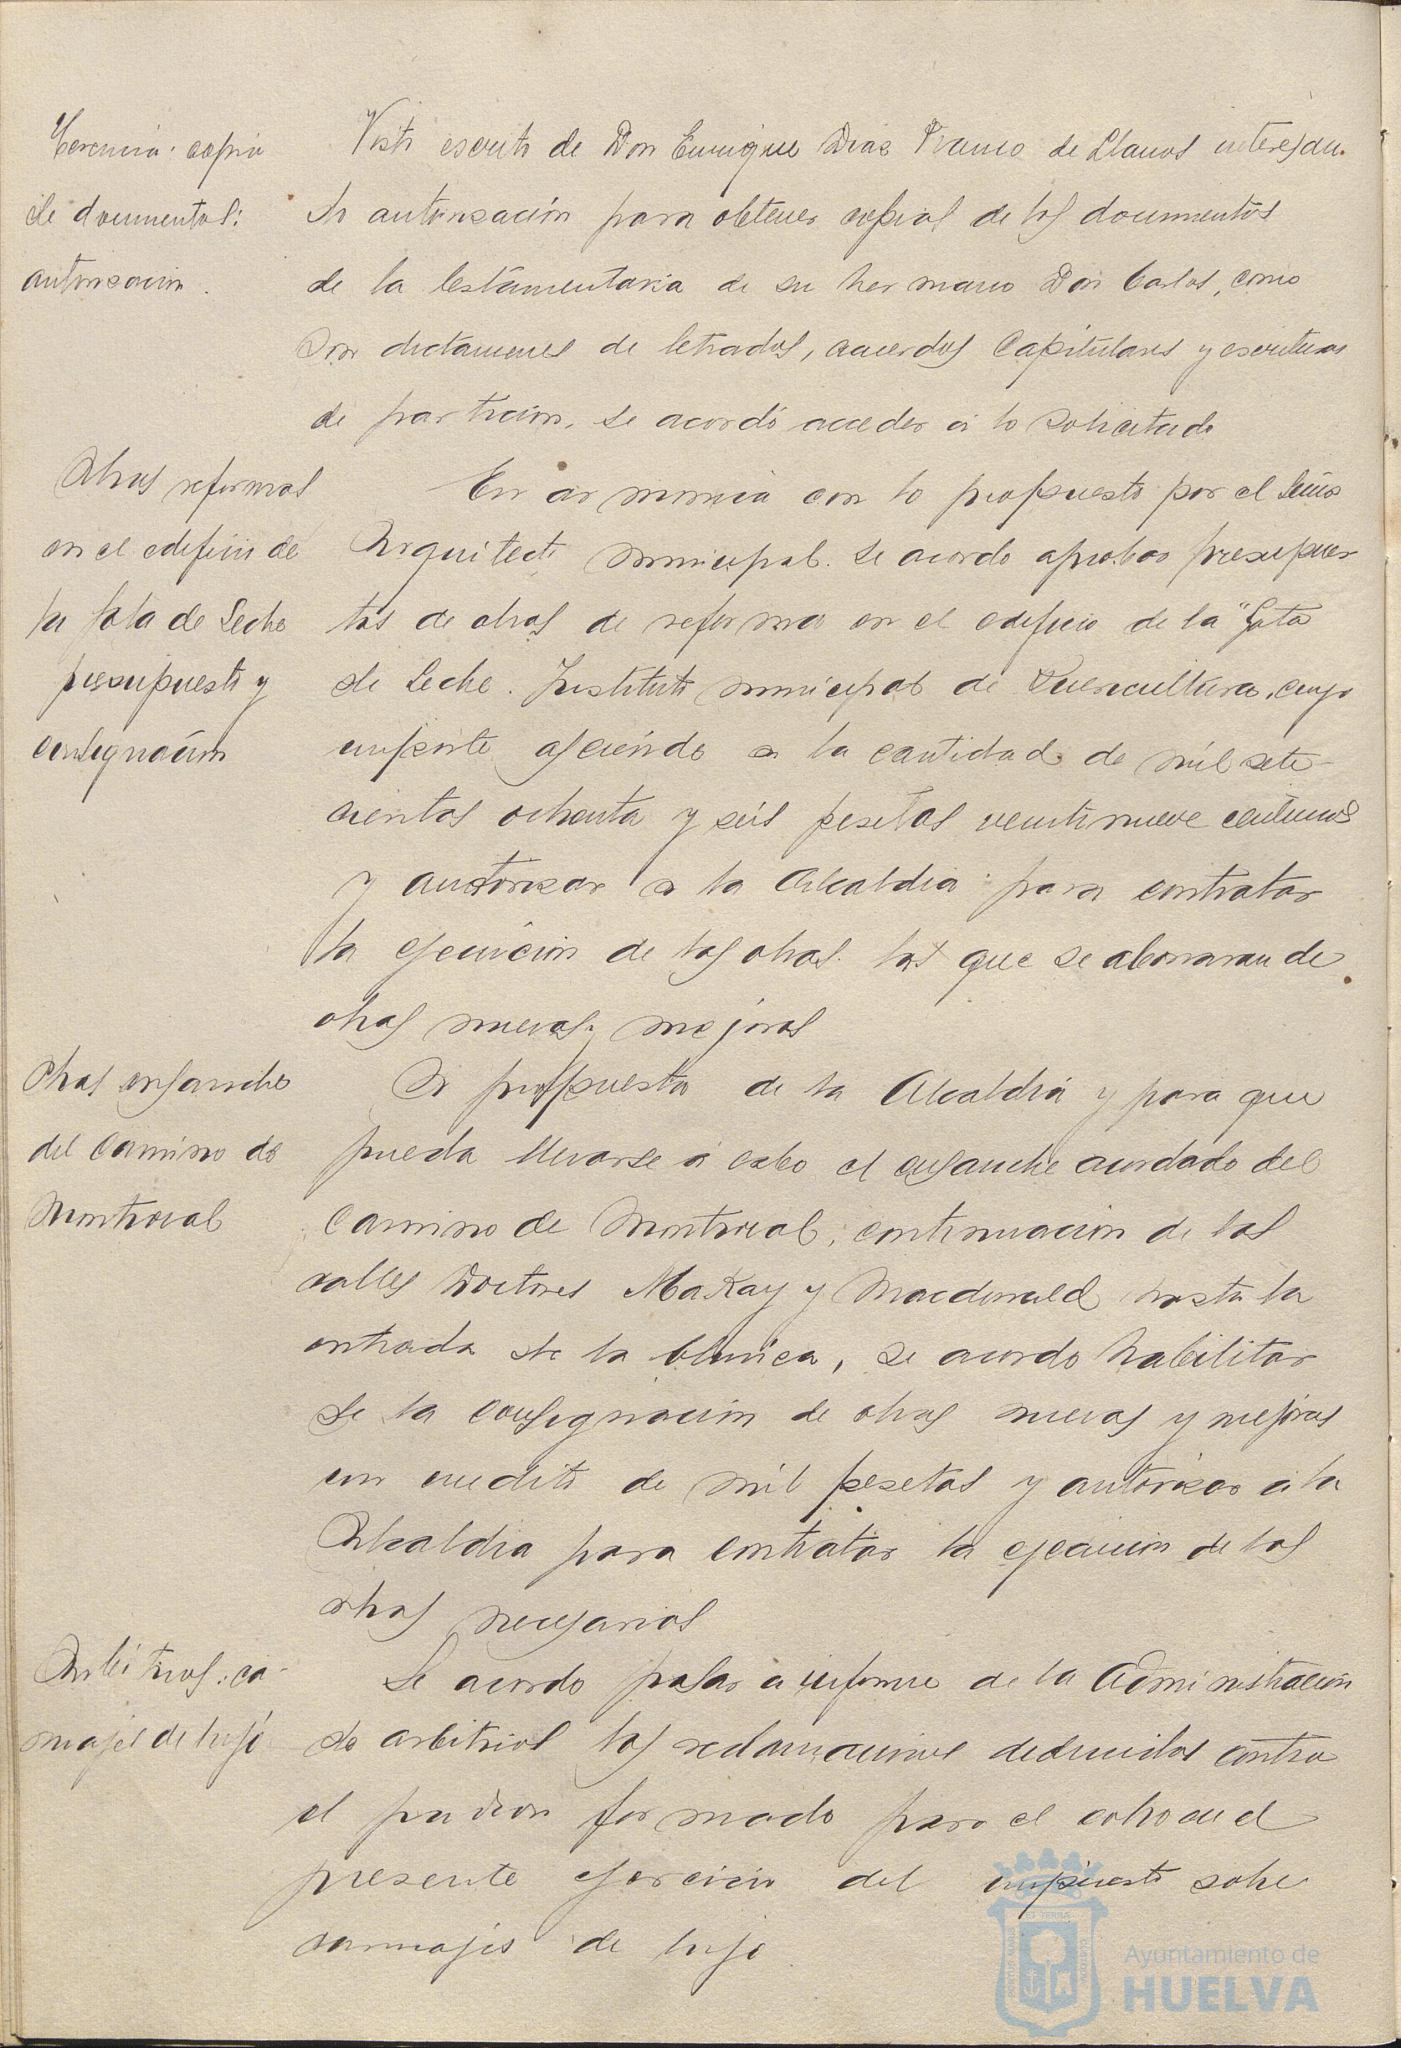 Herencia: copia
de documentos:
autorisación.
Visto escrito de Don Enrique Dias Franco de Llanos interesan-
do autorisación para obtener copias de los documentos
de la testamentaria de su hermano Don Carlos, como
son dictamenes de letrados, acuerdos capitulares y escrituras
de partición, se acordó acceder a lo solicitado
Obras reformas
en el edificio de
la Gota de Leche
presupuesto y
consignación
En armonia con lo propuesto por el Señor
Arquitecto municipal. se acordo aprobar presupues-
tos de obras de reforma en el edificio de la "Gota
de Leche. Instituto municipal de Puericultura, cuyo
importe asciende a la cantidad de mil sete-
cientos ochenta y seis pesetas veintinueve centimos
y autorisar a la Alcaldia para contratar
la ejecución de las obras. las que se abonaran de
obras nuevas y mejoras
Obras ensanche
del Camino de
Montrocal
A propuesta de la Alcaldia y para que
pueda llevarse a cabo el ensanche acordado del
Camino de Montrocal, continuación de las
calles Doctores MaKay y Macdonald hasta la
entrada de la clinica, se acordo habilitar
de la consignación de obras nuevas y mejoras
un credito de mil pesetas y autorisar a la
Alcaldia para contratar la ejecución de las
obras necesarias
Arbitrios: ca-
rruajes de lujo
Se acordo pasar a informe de la Administración
de arbitrios las reclamaciones deducidas contra
el padron formado para el cobro en el
presente ejercicio del impuesto sobre
carruajes de lujo
Ayuntamiento de
HUELVA